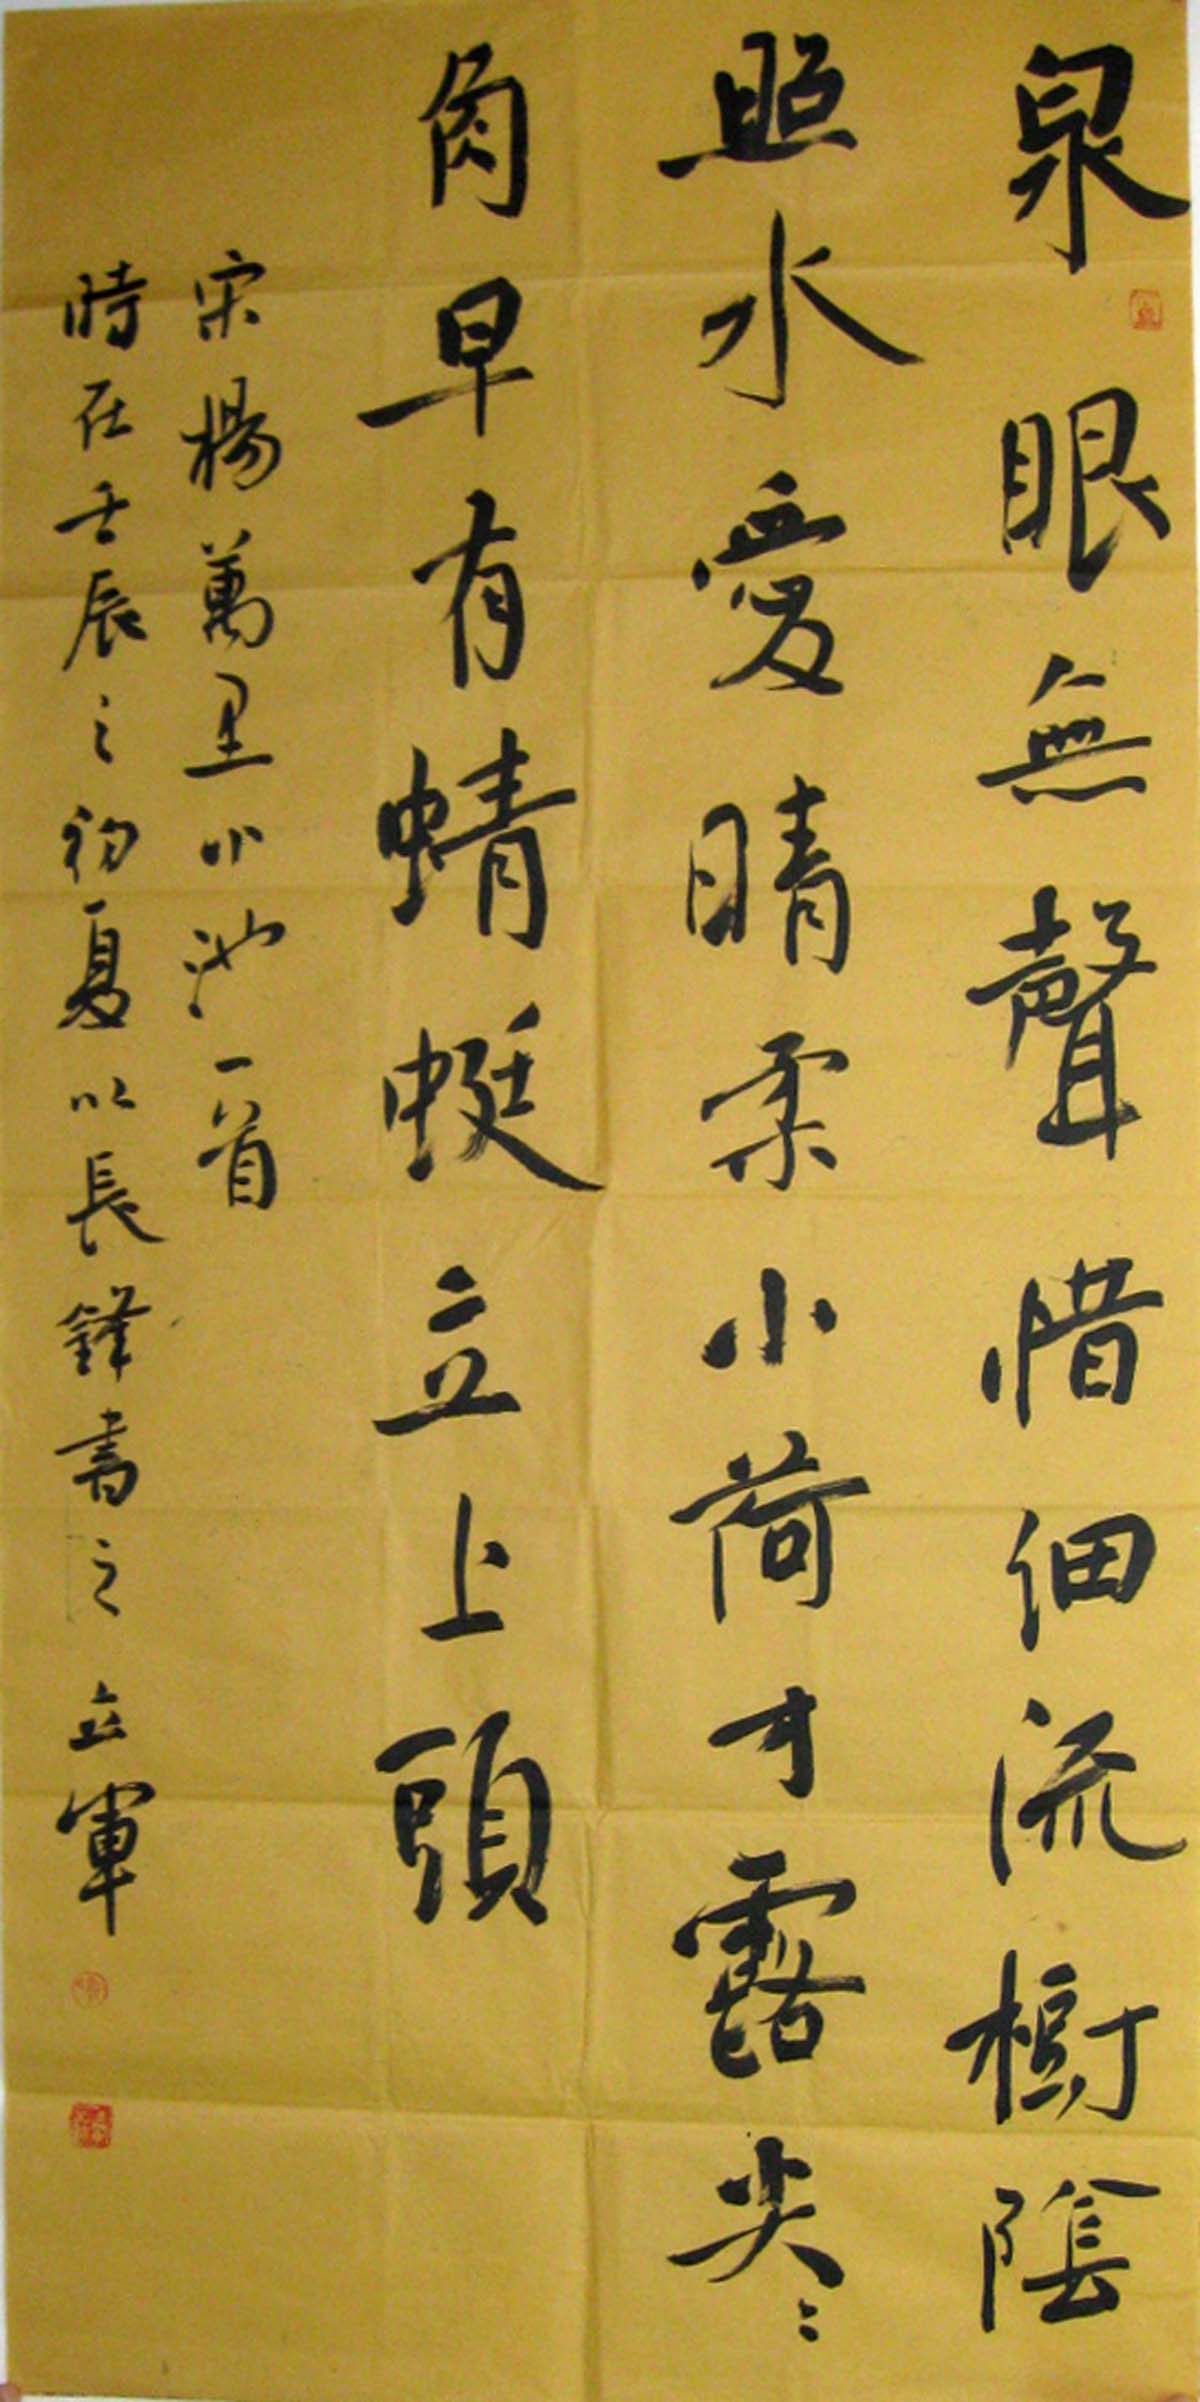 泉眼無聲惜細流樹陰
照水愛晴柔小荷才露尖々
角早有蜻蜓立上頭
宋楊萬里小池一首
時在壬辰之初夏以長鋒書之立軍